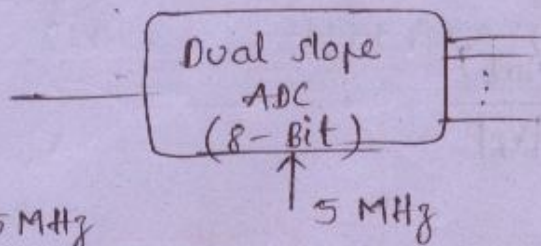 Dual slope
ADC
(8-Bit)
5 MHz
5 MHz